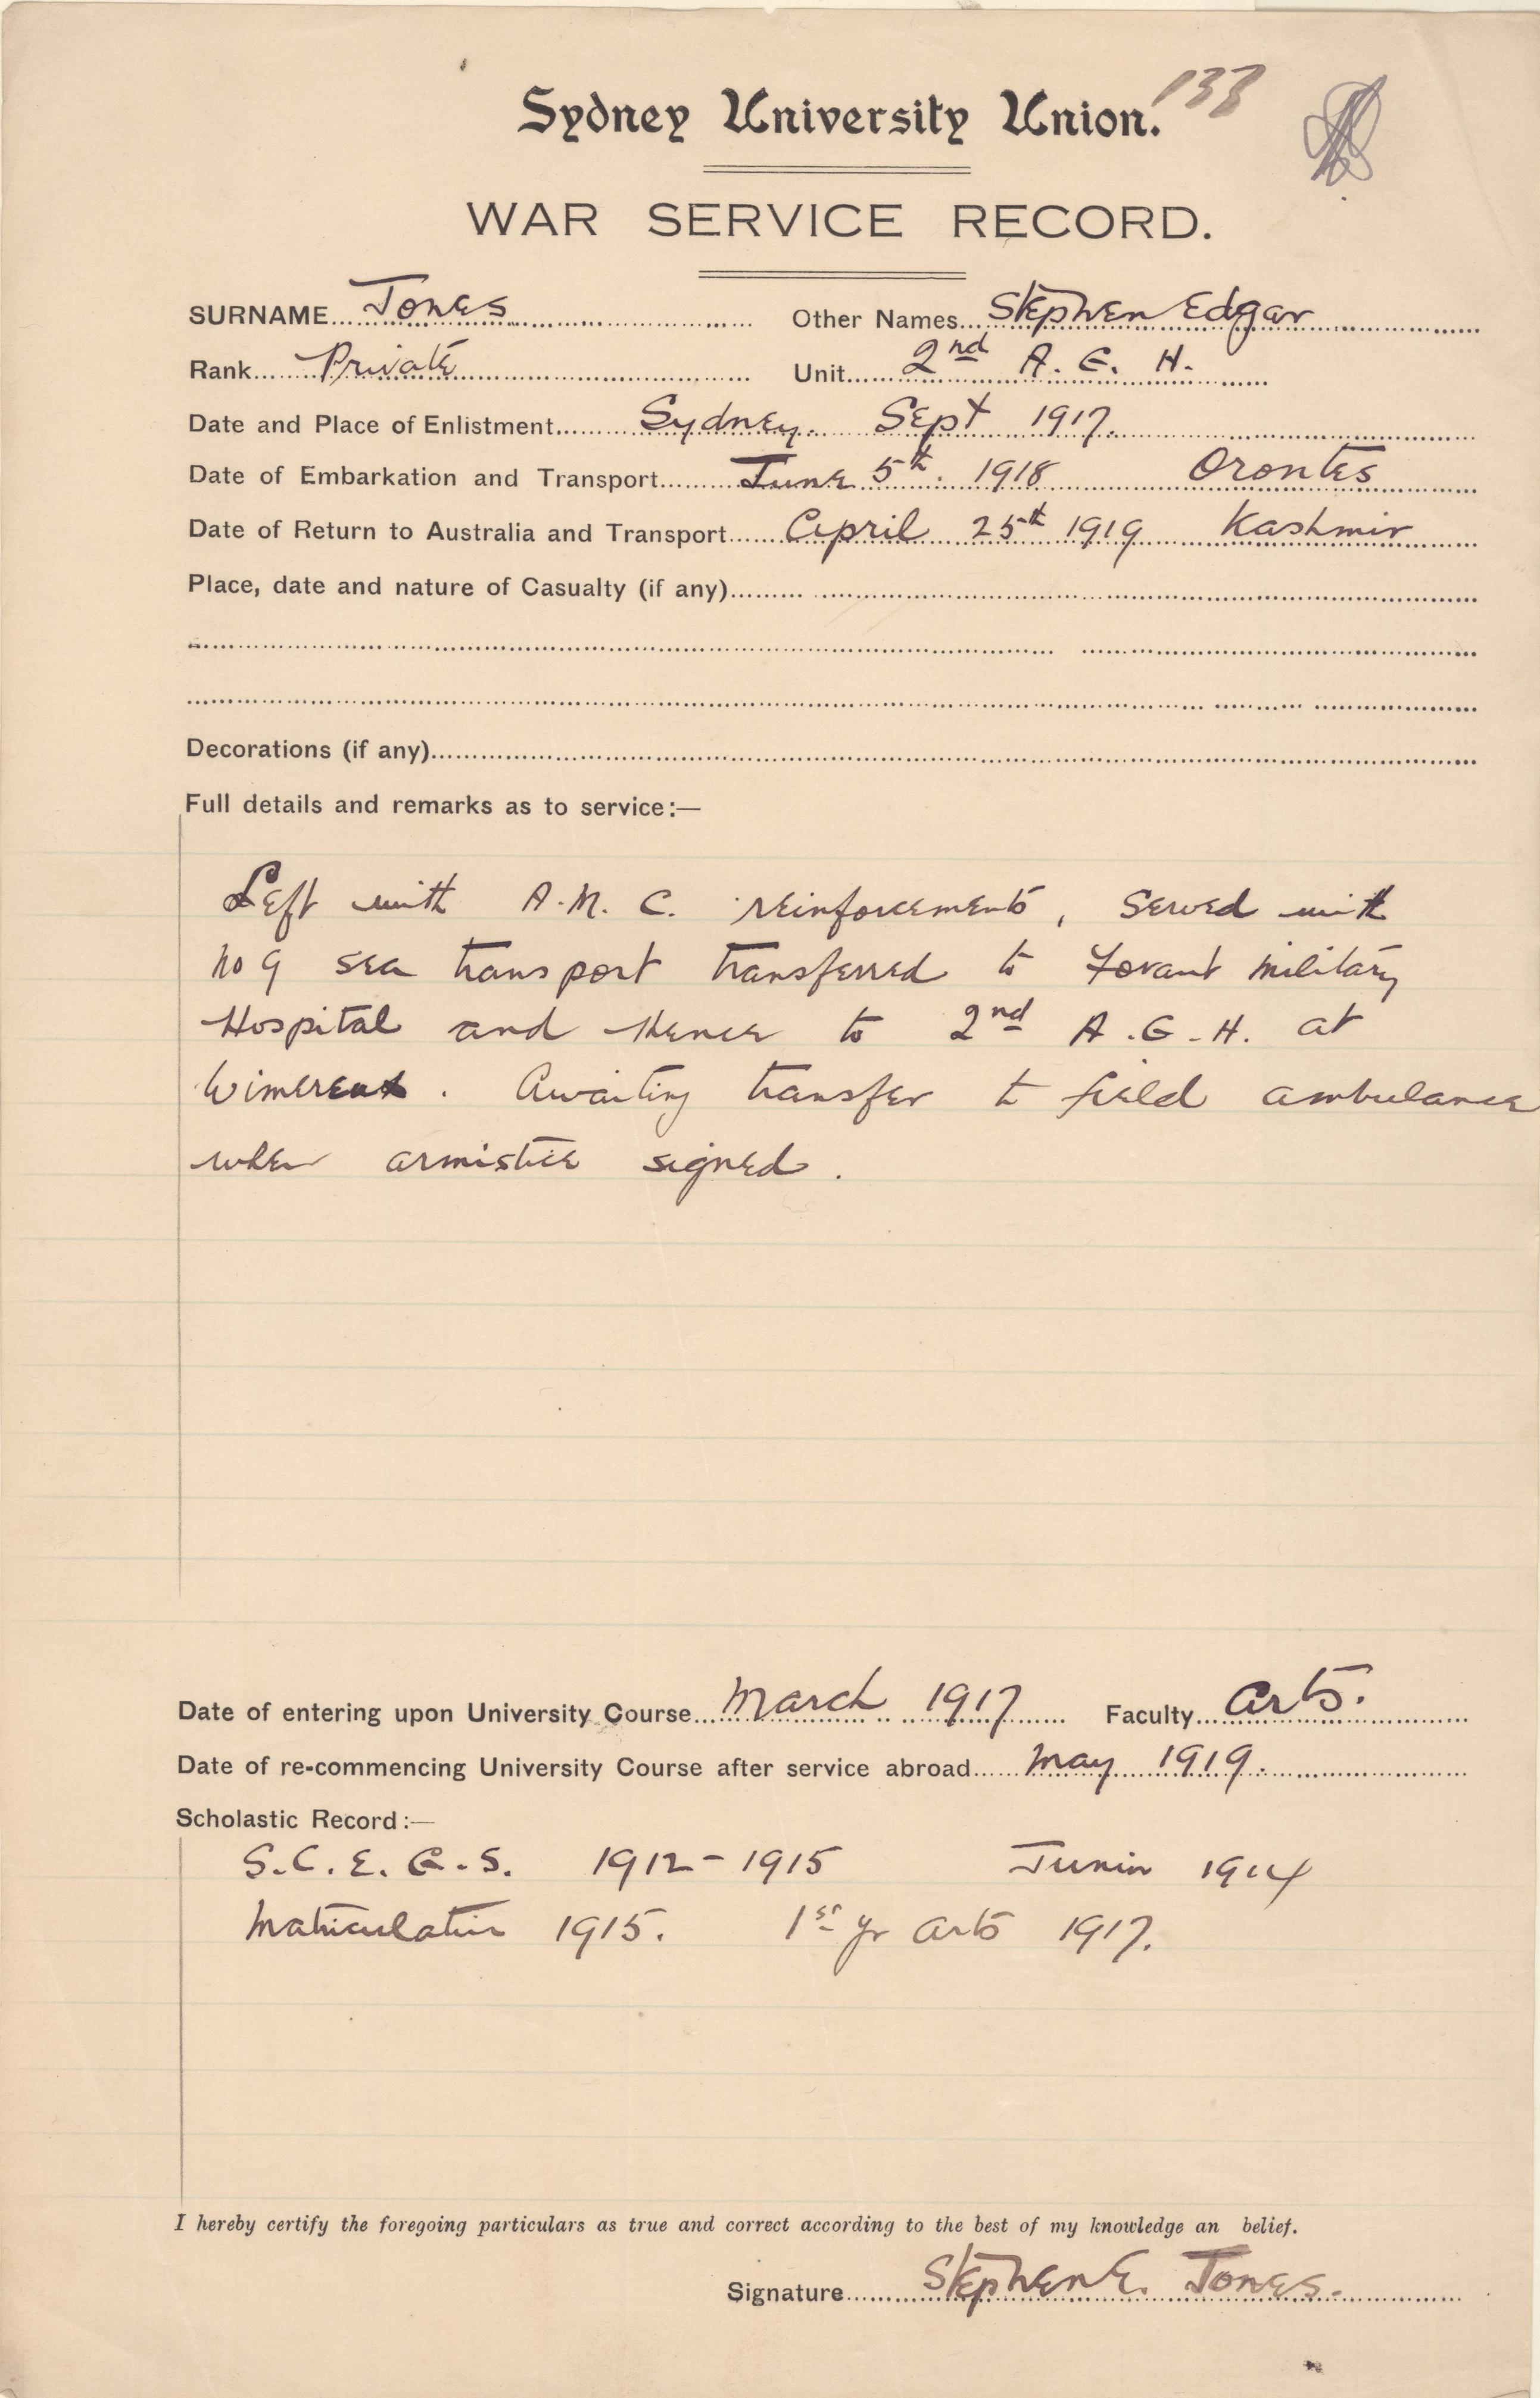 Sydney University Union. 138
WAR SERVICE RECORD.
SURNAME Jones Other Names Stephen Edgar
Rank Private Unit 2nd A. G. H.
Date and Place of Enlistment Sydney. Sept 1917.
Date of Embarkation and Transport June 5th. 1918 Orontes
Date of Return to Australia and Transport April 25th 1919 Kashmir
Place, date and nature of Casualty (if any)
Decorations (if any)
Full details and remarks as to service:—
Left with A.M.C. reinforcements, served with
No 9 sea transport transferred to Fovant Military
Hospital and thence to 2nd A.G.H. at
Wimereux. Awaiting transfer to field ambulance
when armistice signed.
Date of entering upon University Course March 1917 Faculty Arts.
Date of re-commencing University Course after service abroad May 1919.
Scholastic Record:—
S.C.E.G.S. 1912-1915 Junior 1914
Matriculation 1915. 1st yr Arts 1917.
I hereby certify the foregoing particulars as true and correct according to the best of my knowledge an belief.
Signature Stephen E. Jones.